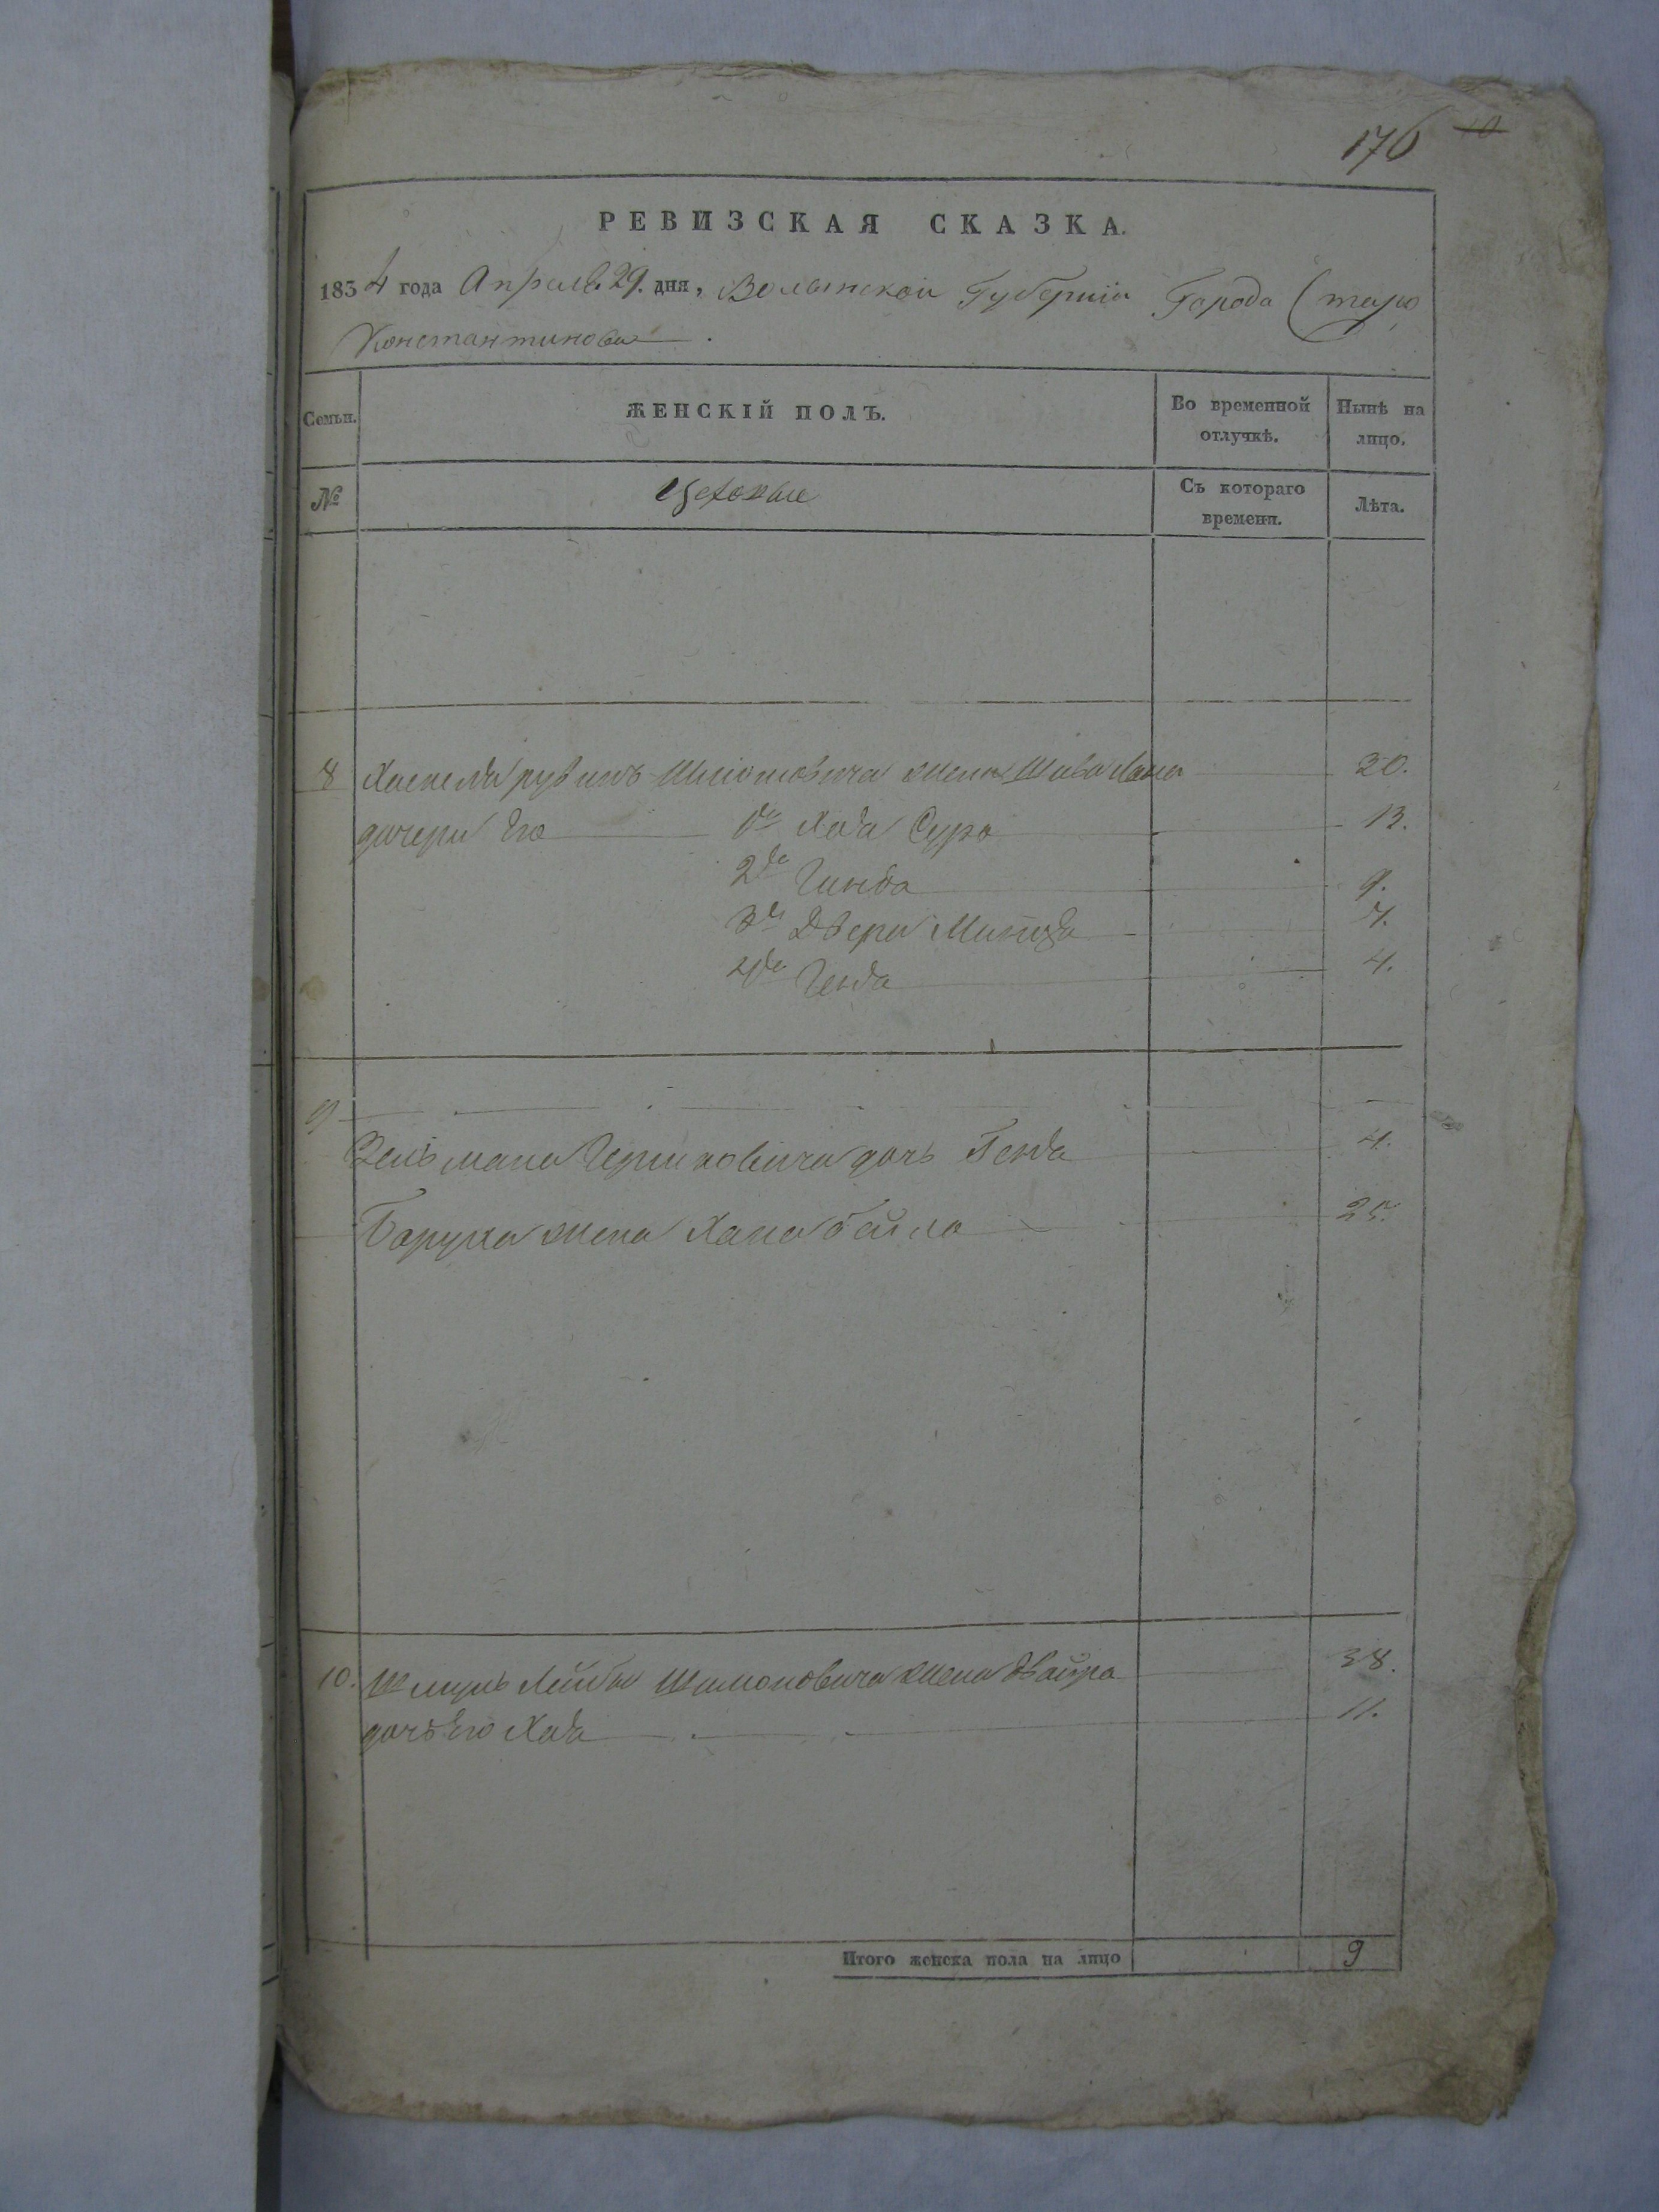 176
РЕВИЗСКАЯ СКАЗКА.
1834 года Апреля 29. дня, Волынской Губернiи Города Старо
Константинова
Семьи.
ЖЕНСКIЙ ПОЛЪ.
Во временной отлучкѣ.
Нынѣ на лицо.
№
Цеховые
Съ котораго времени.
Лѣта.
8 жена 30.
дочери Его 1я Хава Сура 13.
2я Гинда 9.
3я Двера Минца
4я Генда 4.
9
Зельмана Гершковича дочь Генда 4.
Боруха жена Хана бейла 25.
10. Шмуль Лейбы Шимоновича жена двойра 38.
дочь Его Хава 11.
Итого женска пола на лицо 9